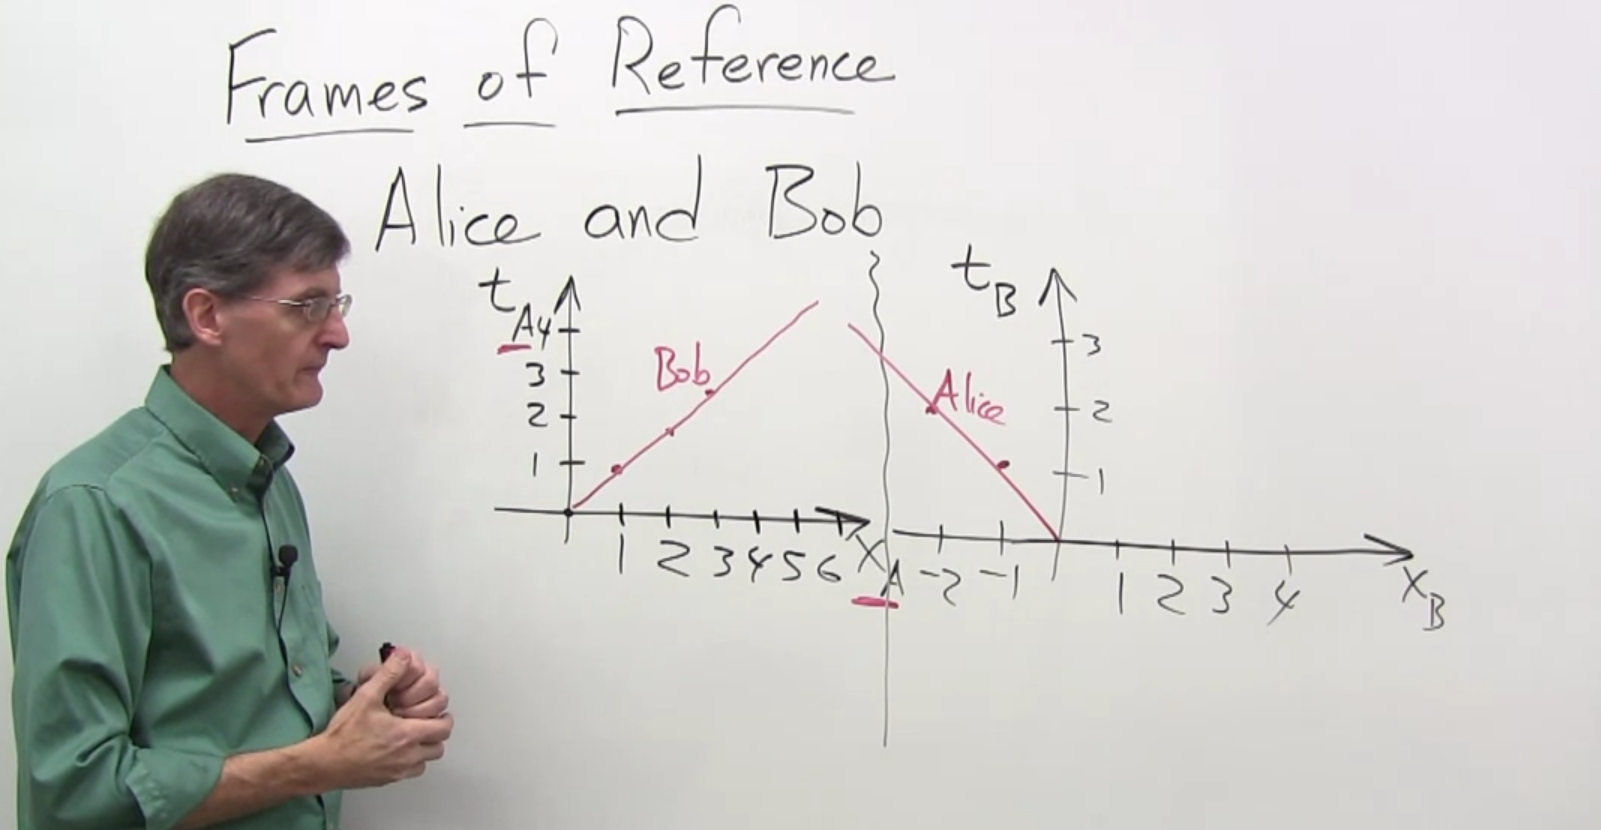 Frames of Reference
Alice and Bob
t_A
4
3
2
1
Bob
1 2 3 4 5 6 x_A
t_B
3
2
1
Alice
-2 -1 1 2 3 4 x_B